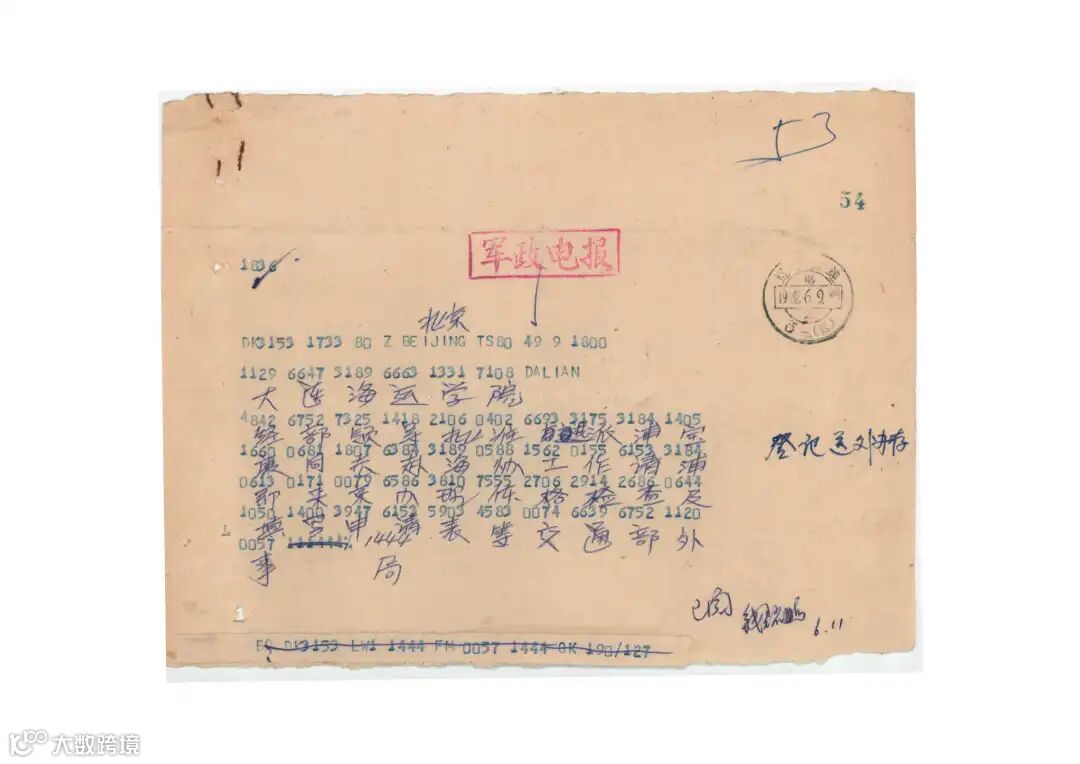 53
54
军政电报
1836
北京
DK3153 1733 80 Z BEIJING TS80 49 9 1800
1129 6647 3189 6663 1331 7108 DALIAN
大连海运学院
4842 6752 7325 1418 2106 0402 6693 3175 3184 1405
经部领导批准选派浦宝
1660 0681 1807 6384 3189 0588 1562 0155 6153 3184
康同志赴海协工作请浦
0613 0171 0079 6586 3810 7555 2706 2914 2686 0644
即来京办理体格检查及
1050 1400 3947 6153 5903 4583 0074 6639 6752 1120
填写申请表等交通部外
0057 1444
事局
登记送外办存
已阅 6.11
DK3153 LW1 1444 FM 0057 1444 OK 190/127
大数跨境